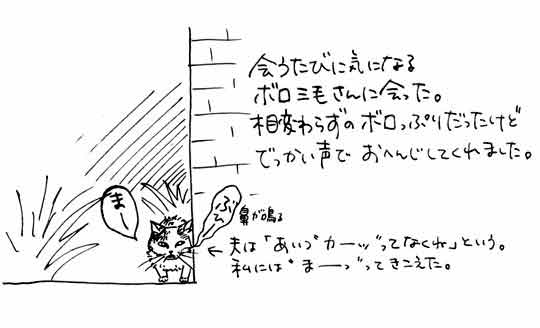 会うたびに気になる
ボロ三毛さんに会った。
相変わらずのボロっぷりだったけど
でっかい声で おへんじしてくれました。
まー
ぶー
鼻が鳴る
← 夫は「あいつ カーッ゙ってなくね」という。
私には"まーっ"ってきこえた。